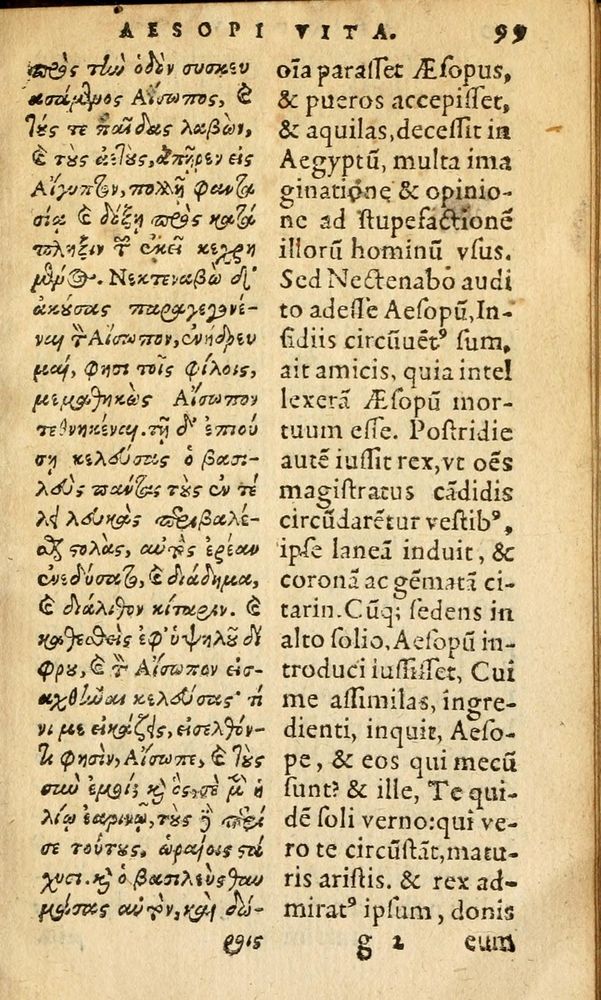 AESOPI VITA. 99
πρὸς τὴν ὁδὸν συσκευ
ασάμενος Αἴσωπος, καὶ
τούς τε παῖδας λαβὼν,
καὶ τοὺς ἀετοὺς, ἀπῆρεν εἰς
Αἴγυπτον, πολλῇ φαντα
σίᾳ καὶ δόξῃ πρὸς κατά
πληξιν τῶν ἐκεῖ κεχρη
μένος. Νεκτεναβὼ δὲ
ἀκούσας παραγεγονέ-
ναι τὸν Αἴσωπον, ἐνήδρευ
μαι, φησὶ τοῖς φίλοις,
μεμαθηκὼς Αἴσωπον
τεθνηκέναι. τῇ δ' ἐπιού
σῃ κελεύσας ὁ βασι-
λεὺς πάντας τοὺς ἐν τέ
λει λευκὰς περιβαλέ-
σθαι στολὰς, αὐτὸς ἐρέαν
ἐνεδύσατο, καὶ διάδημα,
καὶ διάλιθον κίταριν. καὶ
καθεσθεὶς ἐφ' ὑψηλοῦ δί
φρου, καὶ τὸν Αἴσωπον εἰσ-
αχθῆναι κελεύσας· τί
νι με εἰκάζεις, εἰσελθόν-
τι φησὶν, Αἴσωπε, καὶ τοὺς
σὺν ἐμοί; καὶ ὃς, σὲ μὲν ἡ
λίῳ ἐαρινῷ, τοὺς δὲ περί
σε τούτους, ὡραίοις στά
χυσι. καὶ ὁ βασιλεὺς θαυ
μάσας αὐτὸν, καὶ δώ-
ροις
oīa parasset Æsopus,
& pueros accepisset,
& aquilas, decessit in
Aegyptū, multa ima
ginatione & opinio-
ne ad stupefactionē
illorū hominū vsus.
Sed Nectenabo audi
to adesse Aesopū, In-
sidiis circūuētꝰ sum,
ait amicis, quia intel
lexerā Æsopū mor-
tuum esse. Postridie
autē iussit rex, vt oēs
magistratus cādidis
circūdarētur vestibꝰ,
ipse laneā induit, &
coronā ac gēmatā ci-
tarin. Cūq; sedens in
alto solio, Aesopū in-
troduci iussisset, Cui
me assimilas, ingre-
dienti, inquit, Aeso-
pe, & eos qui mecū
sunt? & ille, Te qui-
dē soli verno: qui ve-
ro te circūstāt, matu-
ris aristis. & rex ad-
miratꝰ ipsum, donis
g 2 eum